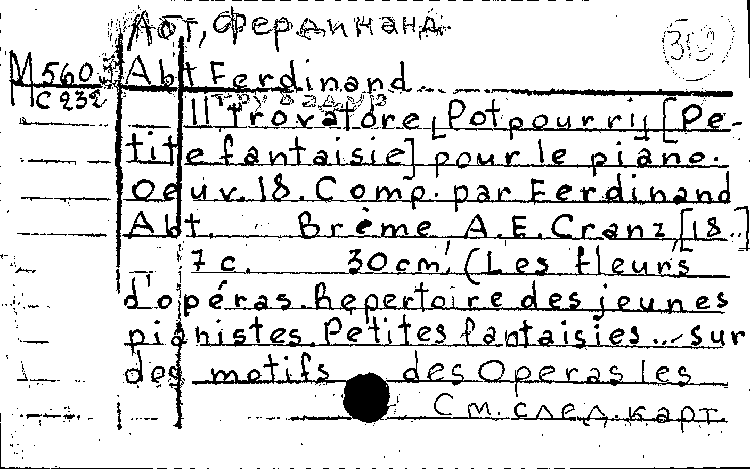 Абт, Фердинанд
M 560
C 232
Abt Ferdinand
Трубадур
Il Trovatore [Potpourri] [Pe-
tite fantaisie] pour le piano.
Oeuv. 18. Comp. par Ferdinand
Abt. Brème, A. E. Cranz, [18..]
7 с. 30 cm. (Les fleurs
d'opéras. Repertoire des jeunes
pianistes. Petites fantaisies... sur
des motifs des Operas les
См. след. карт.